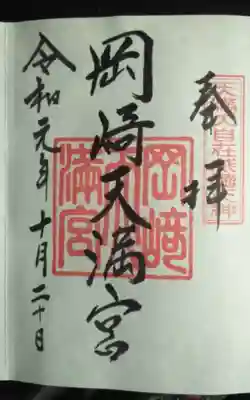 奉拝
岡崎天満宮
令和元年十月二十日
岡崎
天満宮